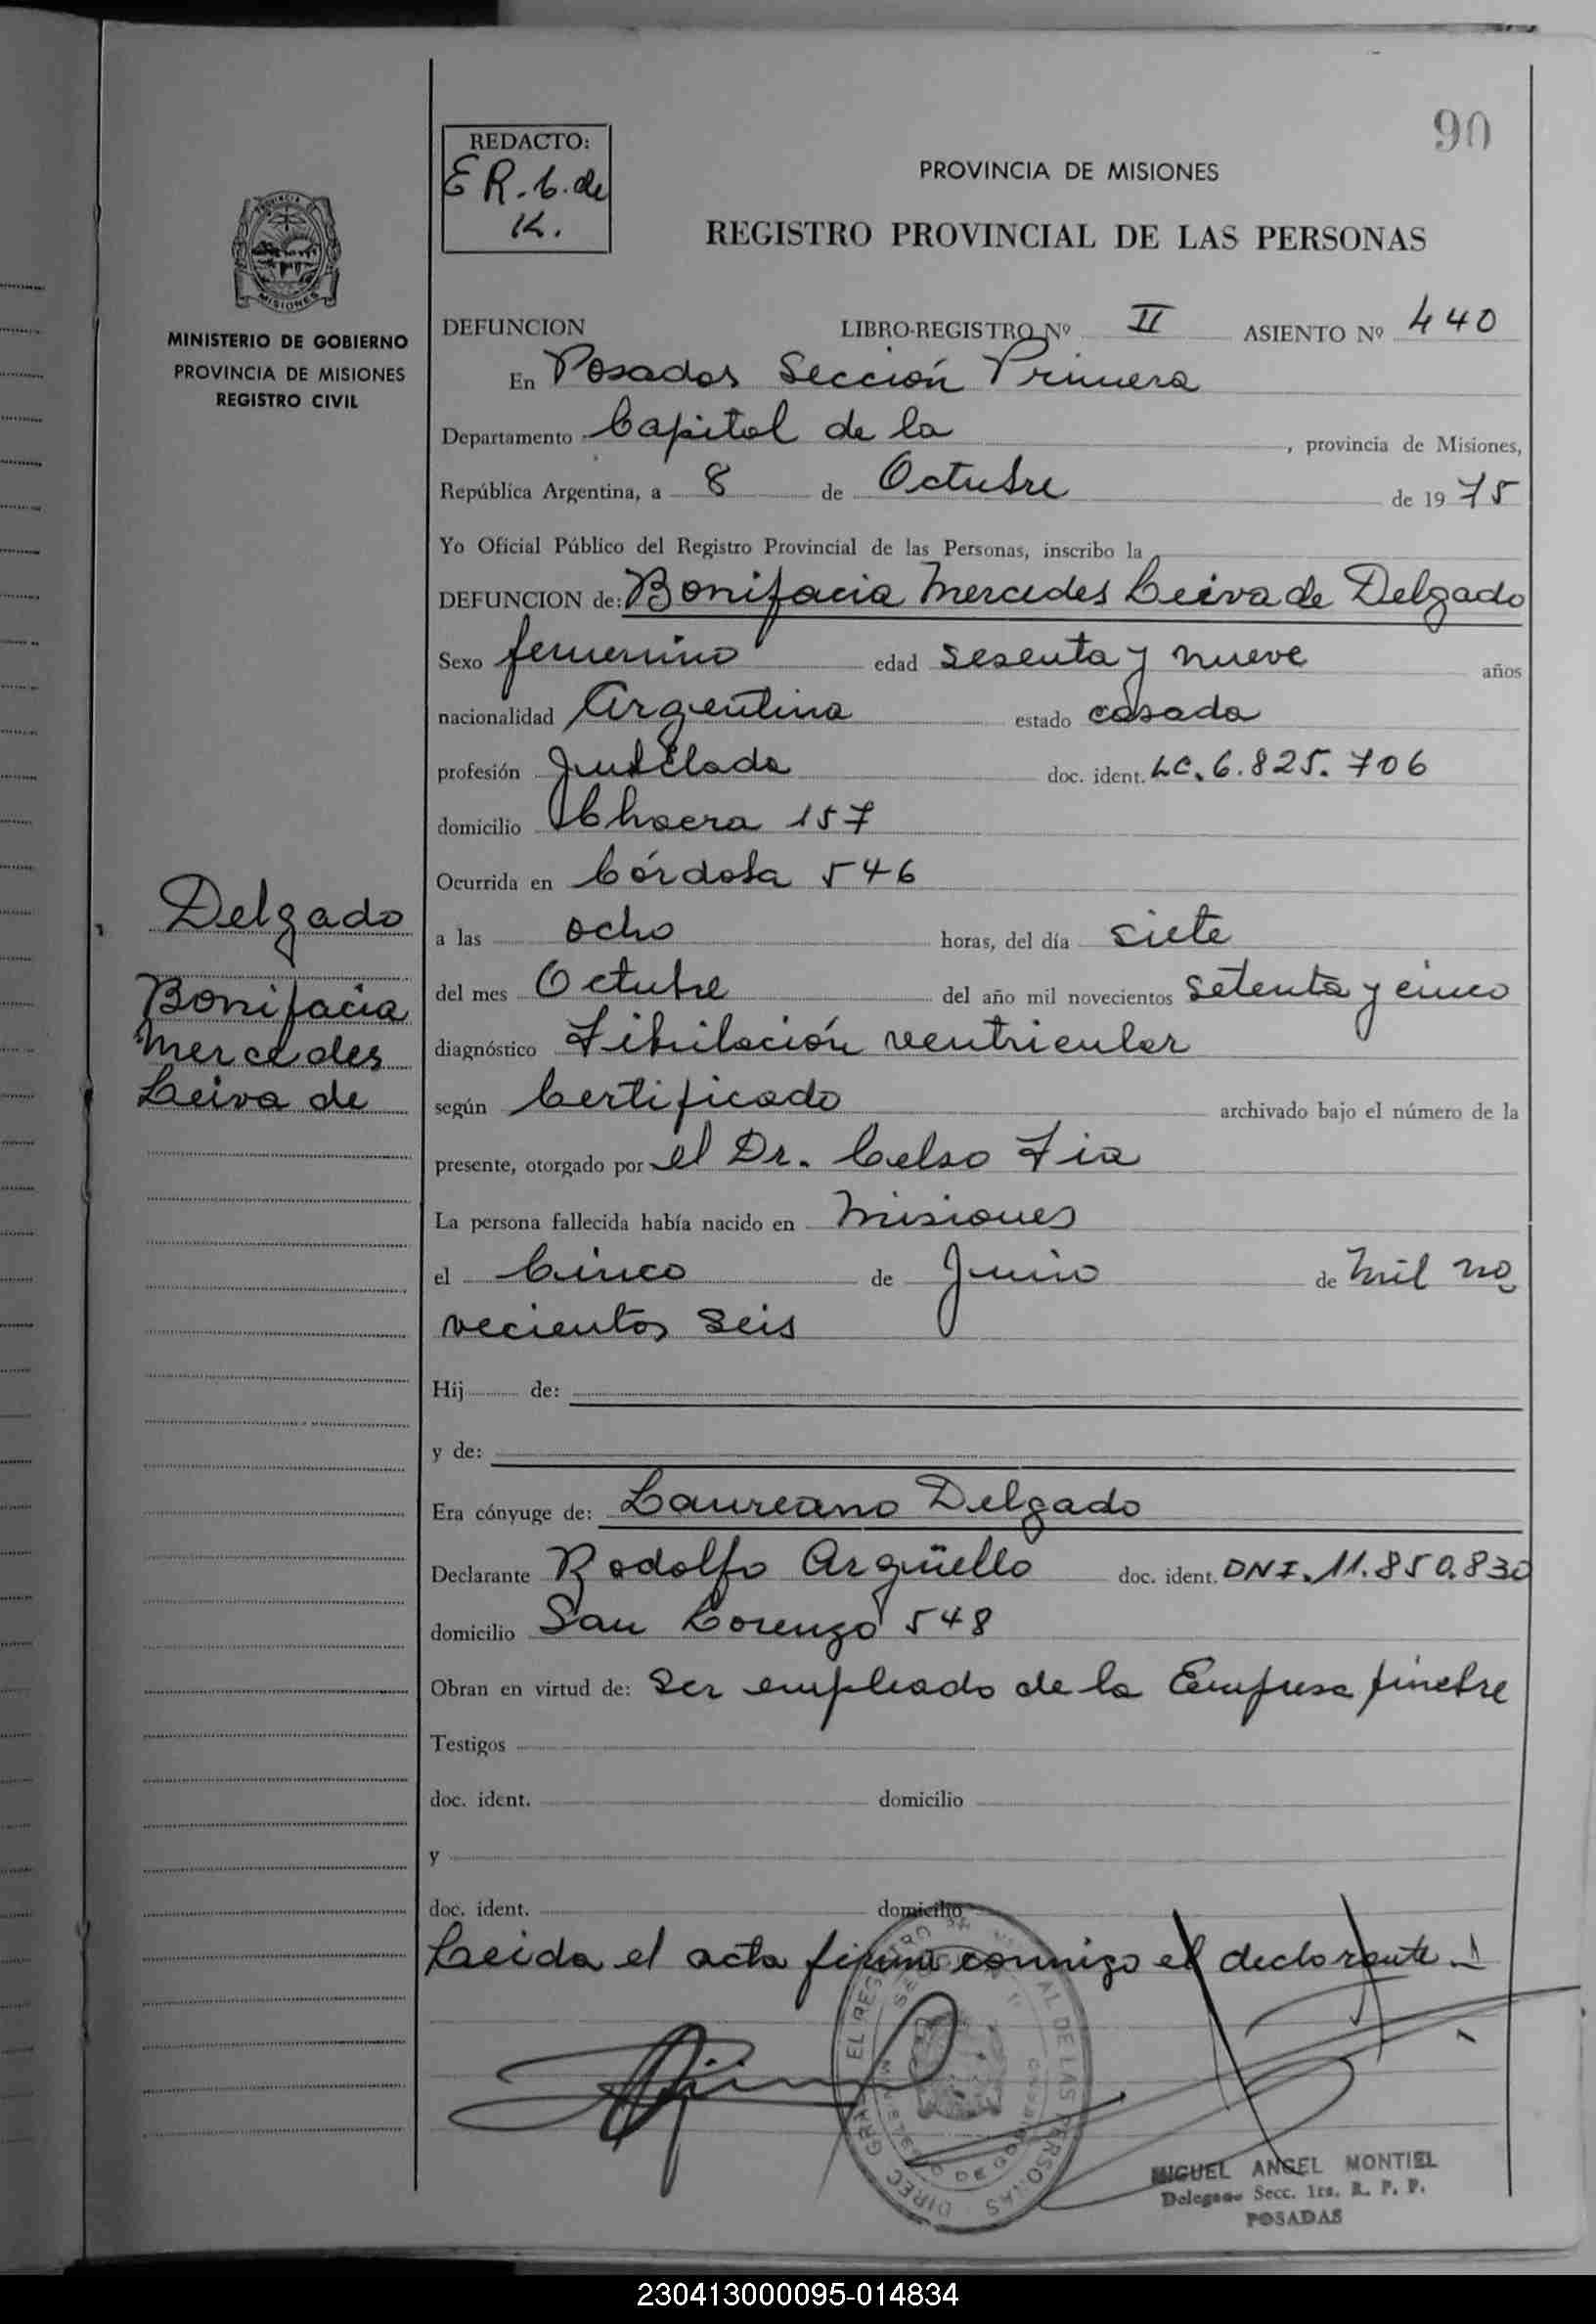 90
REDACTO:
E R. b. de
K.
PROVINCIA DE MISIONES
REGISTRO PROVINCIAL DE LAS PERSONAS
MISIONES
MINISTERIO DE GOBIERNO
PROVINCIA DE MISIONES
REGISTRO CIVIL
DEFUNCION LIBRO-REGISTRO Nº II ASIENTO Nº 440
En Posadas Sección Primera
Departamento Capital de la , provincia de Misiones,
República Argentina, a 8 de Octubre de 19 75
Yo Oficial Público del Registro Provincial de las Personas, inscribo la
DEFUNCION de: Bonifacia Mercedes Leiva de Delgado
Sexo femenino edad sesenta y nueve años
nacionalidad Argentina estado casada
profesión Jubilada doc. ident. LC. 6.825.706
domicilio Chacra 157
Ocurrida en Córdoba 546
a las ocho horas, del día siete
del mes Octubre del año mil novecientos setenta y cinco
diagnóstico Fibrilación ventricular
según Certificado archivado bajo el número de la
presente, otorgado por el Dr. Celso Fia
La persona fallecida había nacido en Misiones
el Cinco de Junio de mil no
vecientos seis
Hij de:
y de:
Era cónyuge de: Laureano Delgado
Declarante Rodolfo Argüello doc. ident. DNI. 11.850.830
domicilio San Lorenzo 548
Obran en virtud de: Ser empleado de la Empresa fúnebre
Testigos
doc. ident. domicilio
y
doc. ident. domicilio
Leida el acta firma conmigo el declarante.
Delgado
Bonifacia
Mercedes
Leiva de
MIGUEL ANGEL MONTIEL
Delegado Secc. 1ra. R. P. P.
POSADAS
230413000095-014834